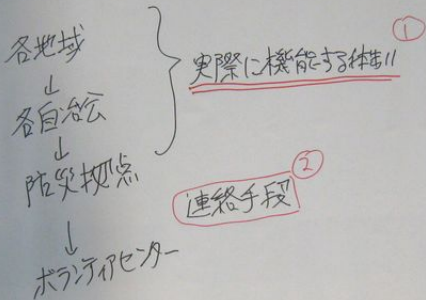 各地域
↓
各自治会
↓
防災拠点
↓
ボランティアセンター
①
実際に機能する体制
②
連絡手段